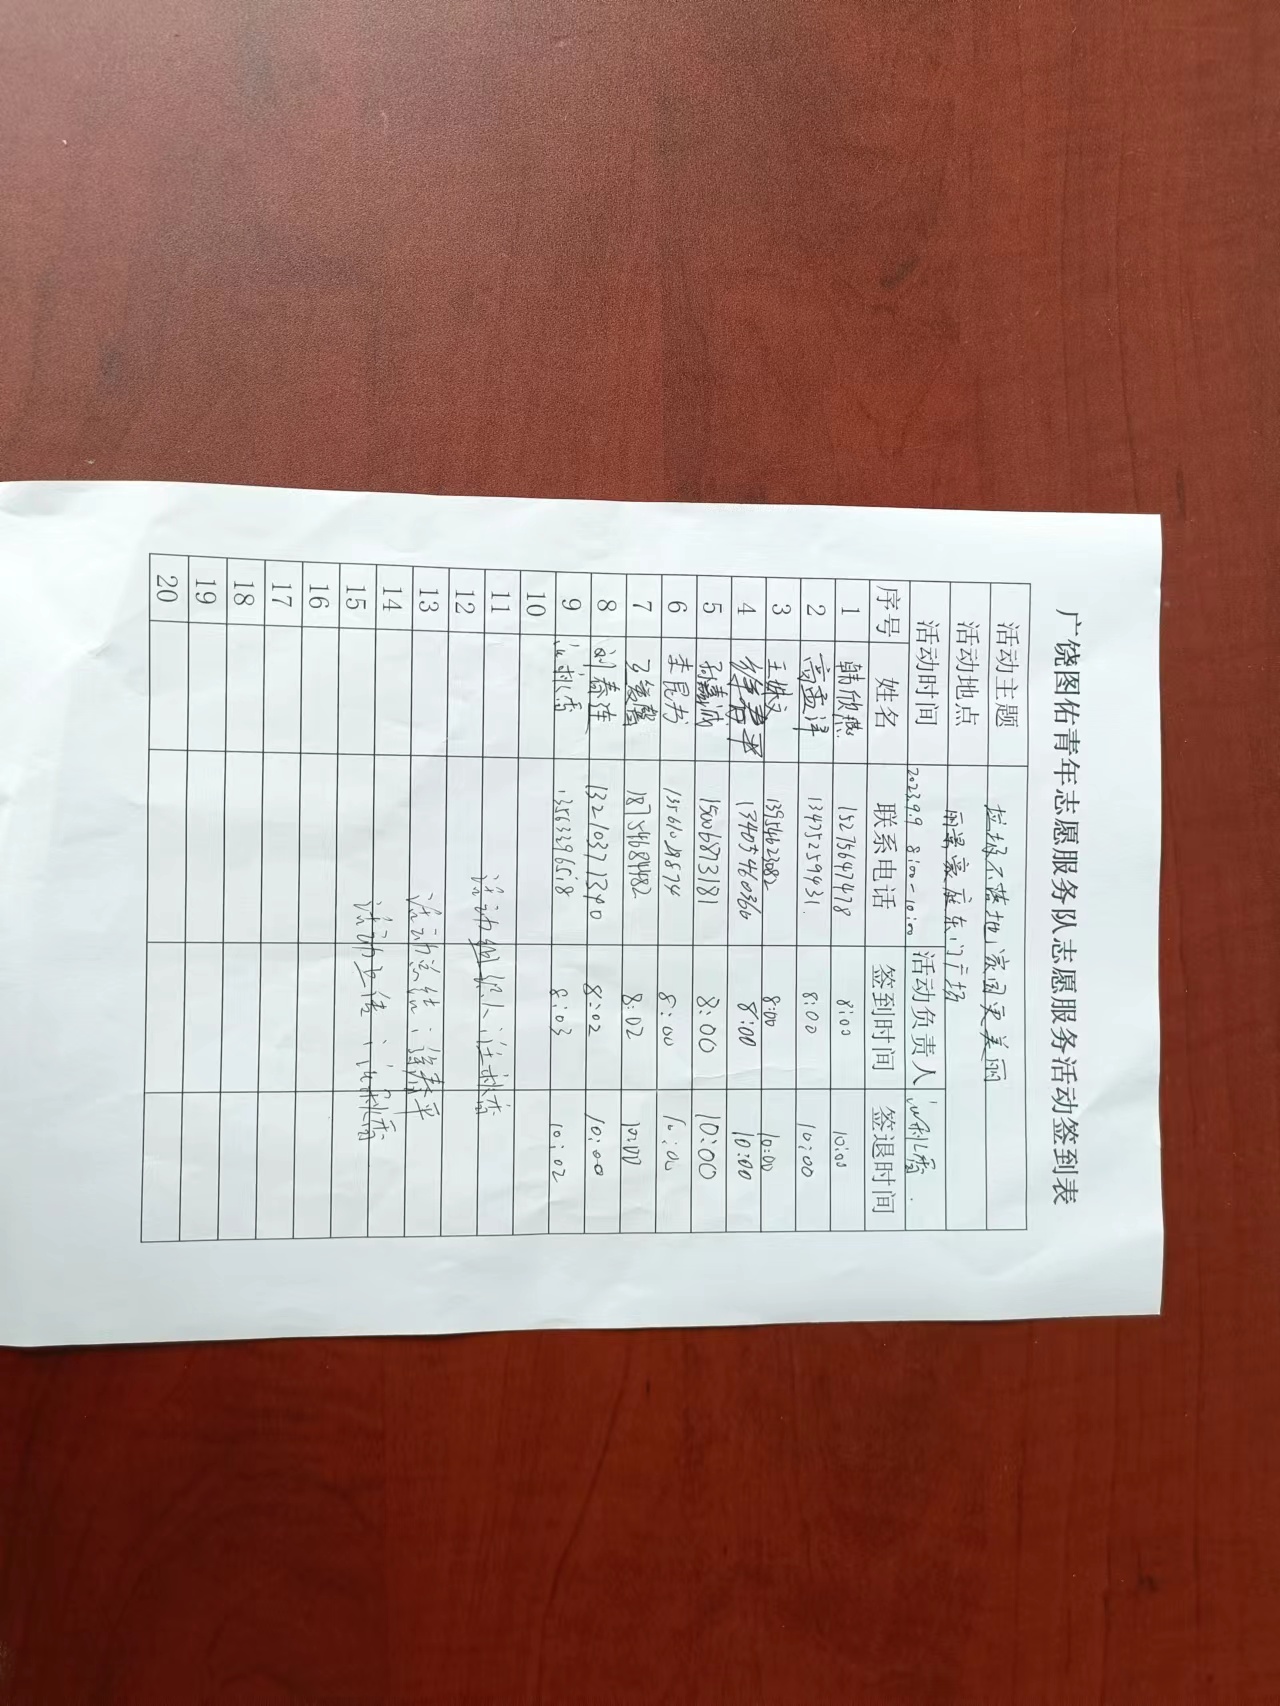 广饶图佑青年志愿服务队志愿服务活动签到表
活动主题 垃圾不落地 家园更美丽
活动地点 丽景豪庭东门广场
活动时间 2023.9.9 8:00-10:00 活动负责人
序号 姓名 联系电话 签到时间 签退时间
1 韩欣燕 15275647478 8:00 10:00
2 高孟洋 13475259431 8:00 10:00
3 13954623082 8:00 10:00
4 徐春平 13405460360 8:00 10:00
5 孙嘉诚 15006873181 8:00 10:00
6 李昆书 8:00 10:00
7 18754684482 8:02 10:00
8 刘春连 13210371340 8:02 10:00
9 13563296518 8:03 10:02
10
11 活动组织:
12
13 活动总结:徐春平
14
15 活动宣传:
16
17
18
19
20